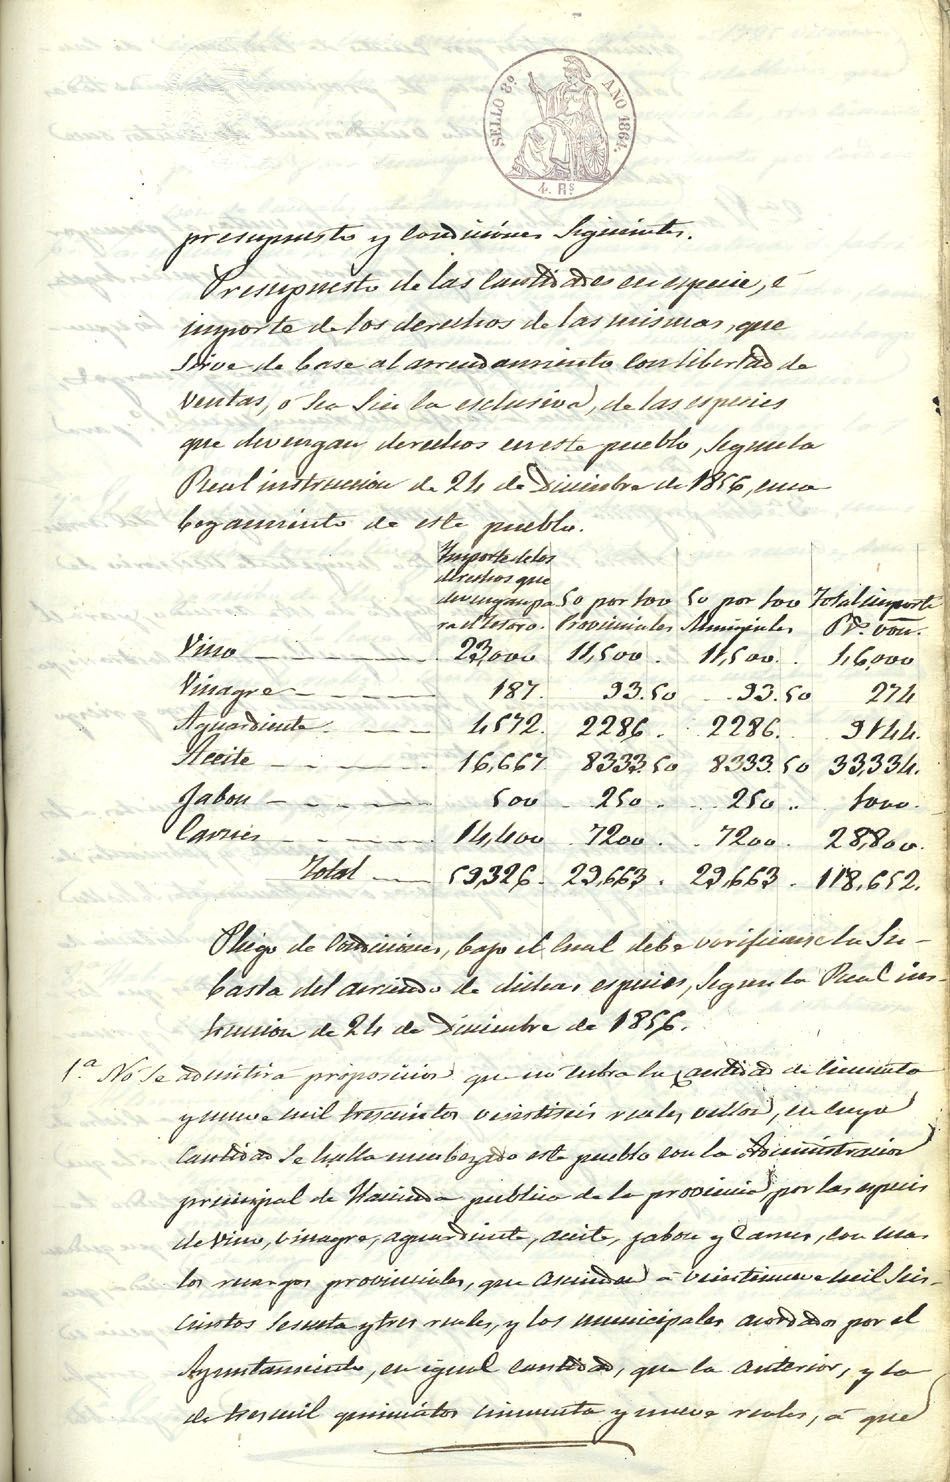 SELLO 8º AÑO 1864.
4. Rs
presupuesto y condiciones Siguientes.
Presupuesto de las Cantidades en especie, é
importe de los derechos de las mismas, que
Sirve de base al arrendamiento con libertad de
Ventas, ó Sea Sin la esclusiva, de las especies
que devengan derechos en este pueblo, Segun la
Real instruccion de 24 de Diciembre de 1856, enca
bezamiento de este pueblo.
Importe de los derechos que devengan pa ra el tesoro. 50 por 100 Provinciales 50 por 100 Municipales Total importe Rs. von.
Vino 23,000 11,500. 11,500. 46,000
Vinagre 187. 93.50 93.50 274
Aguardiente 4572. 2286. 2286. 9144.
Aceite 16,667 8333.50 8333.50 33,334.
Jabon 500 250. 250. 1000.
Carnes 14,400 7200. 7200. 28,800.
Total 59,326. 29,663. 29,663. 118,652.
Pliego de Condiciones, bajo el Cual debe varificarse la Su-
basta del arriendo de dichas especies, Segun la Real ins-
truccion de 24 de Diciembre de 1856.
1.ª No Se admitira proposicion que no cubra la Cantidad de Cincuenta
y nueve mil trescientos veintiseis reales vellon, en cuya
Cantidad Se halla encabezado este pueblo con la Administracion
principal de Hacienda publica de la provincia, por las especies
de Vino, vinagre, aguardiente, aceite, jabon y Carnes, con mas
los recargos provinciales, que ascienden á veintinueve mil Seis-
cientos Sesenta y tres reales, y los municipales acordados por el
Ayuntamiento, en igual cantidad, que la anterior, y la
de tres mil quinientos cincuenta y nueve reales, á que